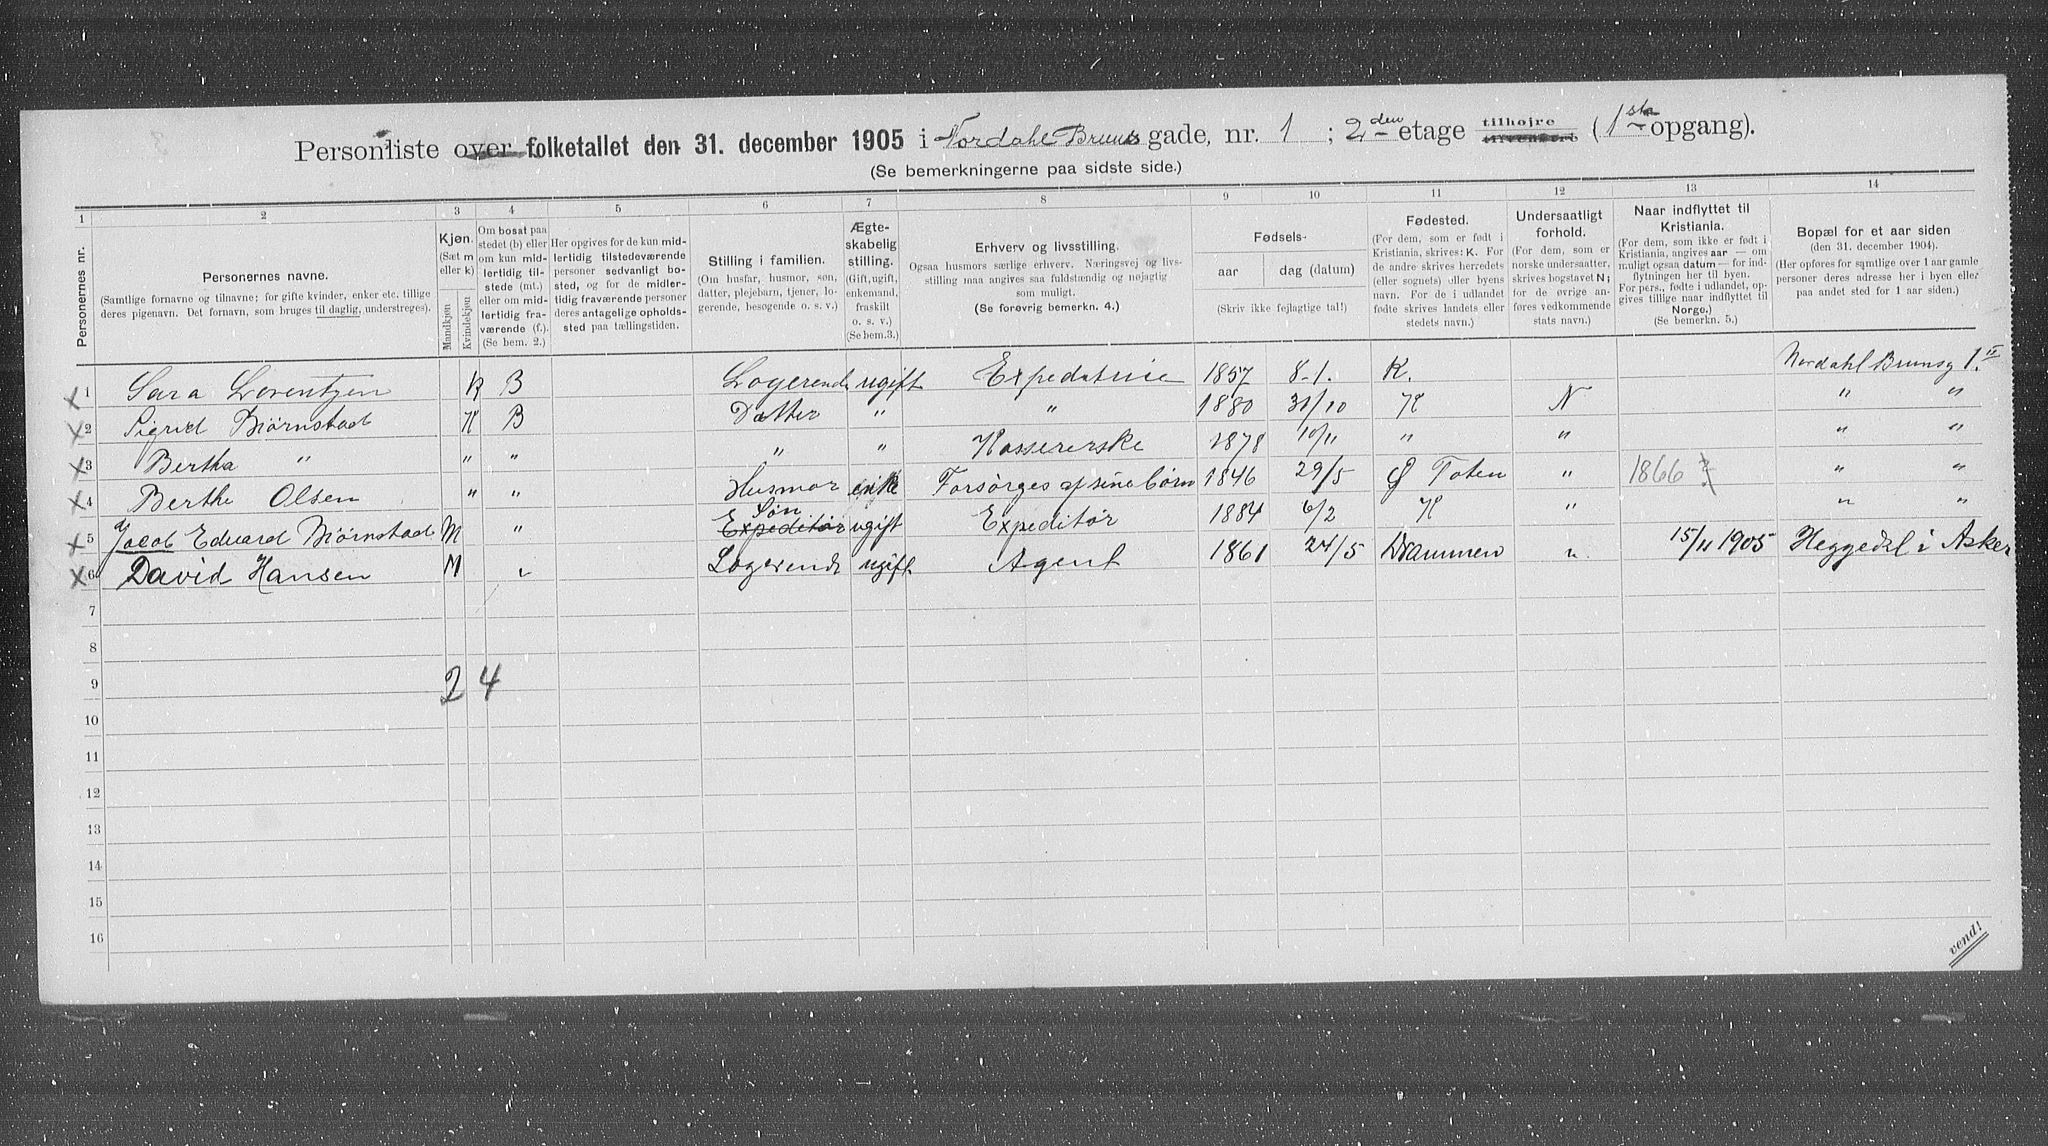 Personliste over folketallet den 31. december 1905 i Nordahl Bruns gade, nr. 1 ; 2den etage tilhøjre tilvenstre (1ste opgang).
(Se bemerkningerne paa sidste side.)
1 2 3 4 5 6 7 8 9 10 11 12 13 14
Personernes nr.
Personernes navne.
(Samtlige fornavne og tilnavne; for gifte kvinder, enker etc. tillige
deres pigenavn. Det fornavn, som bruges til daglig, understreges).
Kjøn.
(Sæt m
eller k)
Mandkjøn
Kvindekjøn
Om bosat paa
stedet (b) eller
om kun mid-
lertidig til-
stede (mt.)
eller om mid-
lertidig fra-
værende (f.).
(Se bem. 2.)
Her opgives for de kun mid-
lertidig tilstedeværende
personer sedvanligt bo-
sted, og for de midler-
tidig fraværende personer
deres antagelige opholds-
sted paa tællingstiden.
Stilling i familien.
(Om husfar, husmor, søn,
datter, plejebarn, tjener, lo-
gerende, besøgende o. s. v.)
Ægte-
skabelig
stilling.
(Gift, ugift,
enkemand,
fraskilt
o. s. v.)
(Se bem.3.)
Erhverv og livsstilling.
Ogsaa husmors særlige erhverv. Næringsvej og livs-
stilling maa angives saa fuldstændig og nøjagtig
som muligt.
(Se forøvrig bemerkn. 4.)
Fødsels-
aar
dag (datum)
(Skriv ikke fejlagtige tal!)
Fødested.
(For dem, som er født i
Kristiania, skrives: K. For
de andre skrives herredets
(eller sognets) eller byens
navn. For de i udlandet
fødte skrives landets eller
stedets navn.)
Undersaatligt
forhold.
(For dem, som er
norske undersaatter,
skrives bogstavet N;
for de øvrige an-
føres vedkommende
stats navn.)
Naar indflyttet til
Kristiania.
(For dem, som ikke er født i
Kristiania, angives aar — om
muligt ogsaa datum — for ind-
flytningen her til byen.
For pers., fødte i udlandet, op-
gives tillige naar indflyttet til
Norge.)
(Se bemerkn. 5.)
Bopæl for et aar siden
(den 31. december 1904).
(Her opføres for samtlige over 1 aar gamle
personer deres adresse her i byen eller
paa andet sted for 1 aar siden.)
x 1 Sara Lorentzen k B Logerende ugift Expeditrice 1857 8-1. K. Nordahl Brunsg 1. II
x 2 Sigrid Bjørnstad K B Datter " " 1880 31/10 K N " "
x 3 Bertha " " " " " Kassererske 1878 10/11 " " " "
x 4 Berthe Olsen " " Husmor enke Forsørges af sine børn 1846 29/5 Ø Toten " 1866 ? " "
x 5 Jacob Eduard Bjørnstad M " Expeditør Søn ugift Expeditør 1884 6/2 K " " "
x 6 David Hansen M " Logerende ugift Agent 1861 24/5 Drammen " 15/11 1905 Heggedal i Asker
7
8
9 2 4
10
11
12
13
14
15
16
vend!